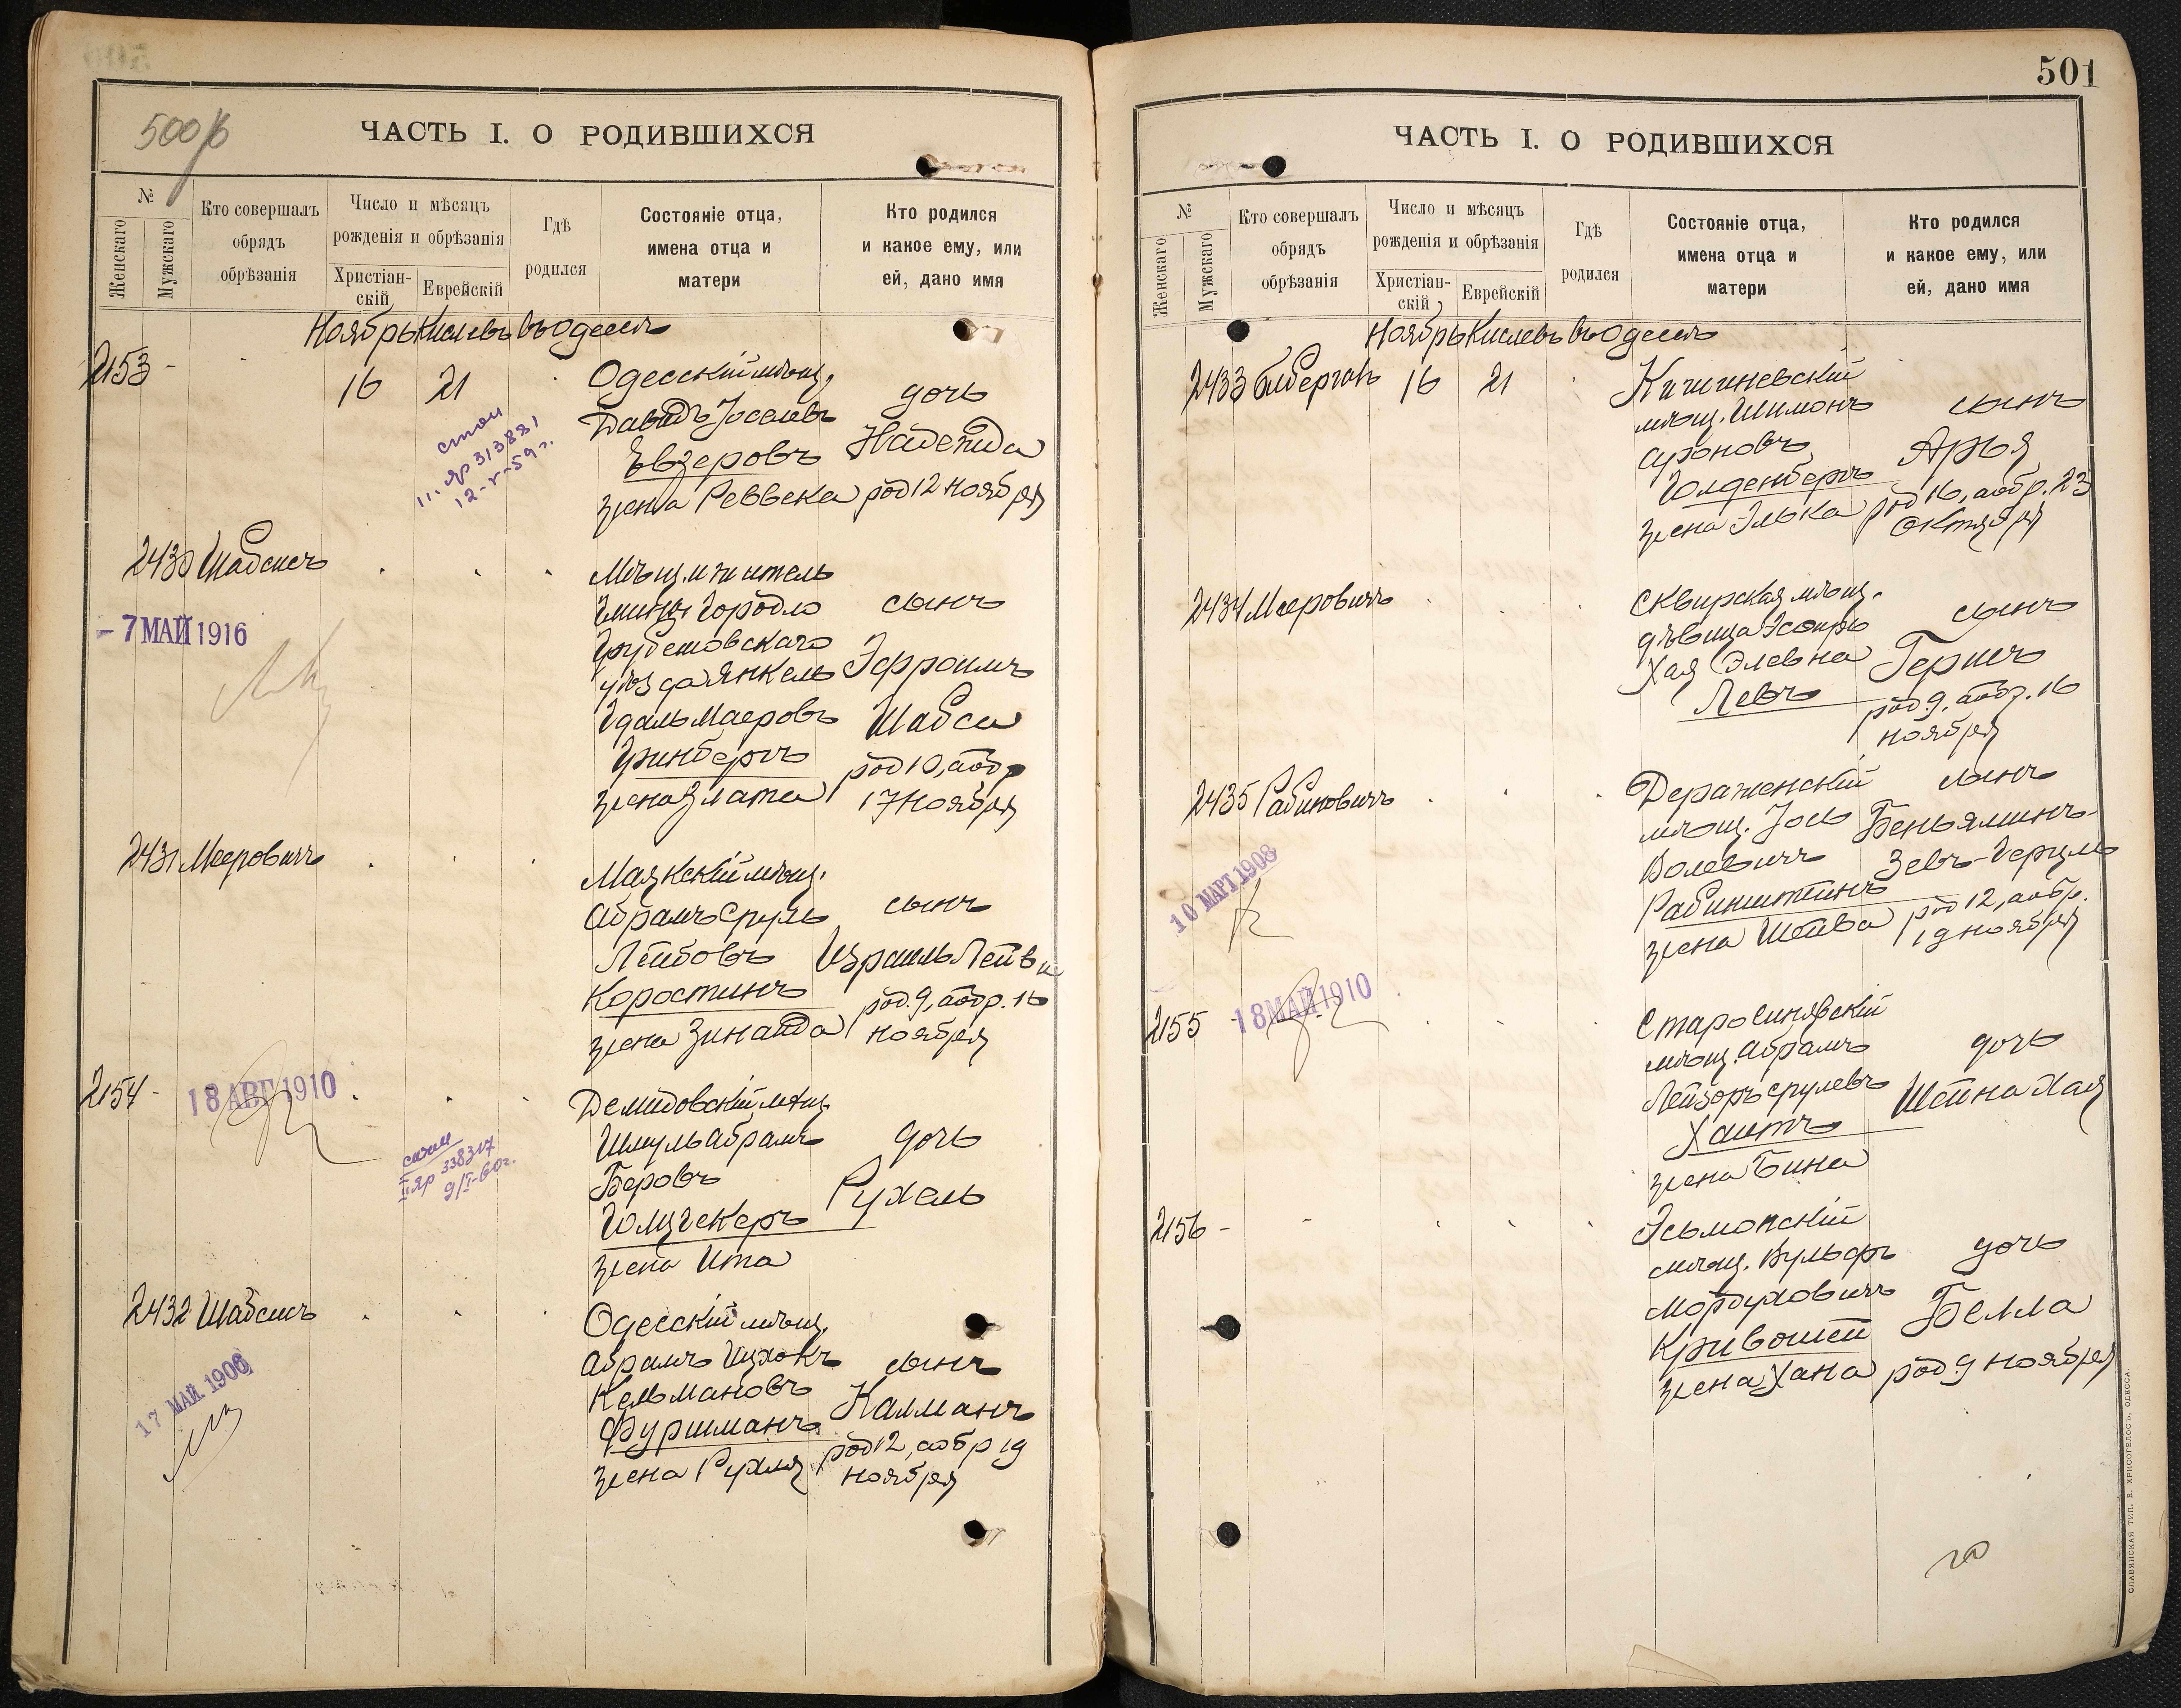 500 б
ЧАСТЬ I. О РОДИВШИХСЯ
№
Женскаго
Мужскаго
Кто совершалъ
обрядъ
обрѣзанія
Число и мѣсяцъ
рожденія и обрѣзанія
Христіан-
скій
Еврейскій
Гдѣ
родился
Состояніе отца,
имена отца и
матери
Кто родился
и какое ему, или
ей, дано имя
Ноябрь Кислевъ въ Одессѣ
2153 -
16 21
Одесскій мѣщ.
Давидъ Іоселевъ
Евзеровъ
жена Реввека
дочь
Надежда
род 12 ноября
11. яр 313881
12-V-59г.
2430 Шабсисъ
- 7 МАЙ 1916
Мѣщ. житель
Гмины Городло
Грубешовскаго
уѣзда Янкель
Идаль Маеровъ
Гринбергъ
жена Злата
сынъ
Эфроимъ
Шабси
род 10, аобр
17 Ноября
2431 Мееровичъ
Маякскій мѣщ.
Абрамъ Сруль
Лейбовъ
Коростинъ
жена Зинаида
сынъ
Израиль Лейви
род. 9, аобр. 16
ноября
2154 -
18 АВГ 1910
II яр 338317
9/I-60г.
Демидовскій мѣщ
Шмуль Абрамъ
Беровъ
Голцгекеръ
жена Ита
дочь
Рухель
2432 Шабсисъ
17 МАЙ. 1906
Одесскій мѣщ.
Абрамъ Ицхокъ
Кельмановъ
Фурманъ
жена Рухля
сынъ
Калманъ
род 12, аобр 19
ноября
501
ЧАСТЬ I. О РОДИВШИХСЯ
№
Женскаго
Мужскаго
Кто совершалъ
обрядъ
обрѣзанія
Число и мѣсяцъ
рожденія и обрѣзанія
Христіан-
скій
Еврейскій
Гдѣ
родился
Состояніе отца,
имена отца и
матери
Кто родился
и какое ему, или
ей, дано имя
Ноябрь Кислевъ въ Одессѣ
2433
16 21
Кишиневскій
мѣщ. Шимонъ
Голденбергъ
жена Элька
сынъ
Арья
род 16, аобр. 23
Октября
2434 Мееровичъ
Сквирская мѣщ.
дѣвица Эсѳирь
Хая Элевна
Левъ
сынъ
Гершъ
род. 9, аобр. 16
ноября
2435 Рабиновичъ
10 МАРТ 1908
Деражненскій
мѣщ. Іось
Волевичъ
Рабинштейнъ
жена Шейва
сынъ
Беньяминъ-
Зевъ-Герцль
род 12, аобр.
19 ноября
2155
18 МАЙ 1910
Старосинявскій
мѣщ. Абрамъ
Лейзоръ Срулевъ
Хаитъ
жена Бина
дочь
Шейна Хая
2156 -
Мѣщ. Вульфъ
Мордуховичъ
Кривошей
жена Хана
дочь
Белла
род. 9 ноября
СЛАВЯНСКАЯ ТИП. Е. ХРИСОГЕЛОСЪ, ОДЕССА.